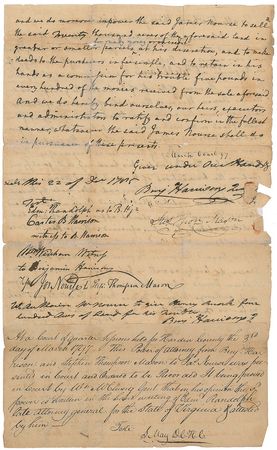 and we do moreover impower the said James Nourse to sell
the said Twenty thousand acres of the aforesaid land in
greater or smaller parcels at his discretion, and to make
deeds to the purchasers in fee simple, and to retain in his
hands as a compense for his trouble five pounds in
every hundred of the monies received from the sale aforesaid
And we do hereby bind ourselves, our heirs, executors
and administrators to ratify and confirm in the fullest
manner, whatsoever the said James Nourse shall do
in pursuance of these presents.
Given under Our Hands
this 22 of
Benj Harrison
Test
Edm. Randolph as to B. H
Carter B Harrison
witness to B Harrison
Witness
to Benjamin Harrison
to Stes Thompson Mason
to give Henry
hundred Acres of Land for his
Benj Harrison
At a court of quarter Sessions held for Harden County the
day of March 1797 This Power of attorney from Benj Har
rison and Stephen Thompson Mason to James Nourse
sented in Court and Ordered to be Recorded It being proved
in court by Wm McClung
hand writing of Edm Randolph
late attorney general for the State of Virginia
by him
Teste